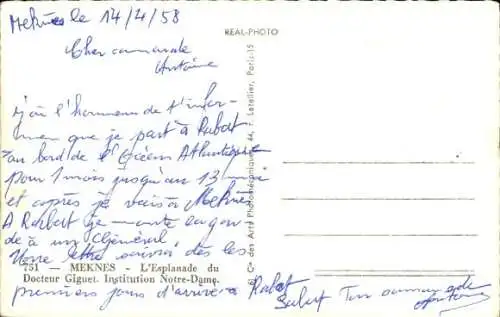 Meknes le 14/4/58
REAL-PHOTO
Cher camarade
Antoine
j'ai l'honneur de t'infor-
mer que je part à Rabat
au bord de l'Océan Atlantique
pour 1 mois jusqu'au 13 mai
et après je vais à Meknes
A Rabat je monte la gar
de à un Général.
Votre lettre suivra dès les
751 — MEKNES - L'Esplanade du
Docteur Giguet. Institution Notre-Dame.
premiers jours d'arrivera Rabat
Salut Ton camarade
Antoine
Cie des Arts Photomécaniques, 44, r. Letellier, Paris-15